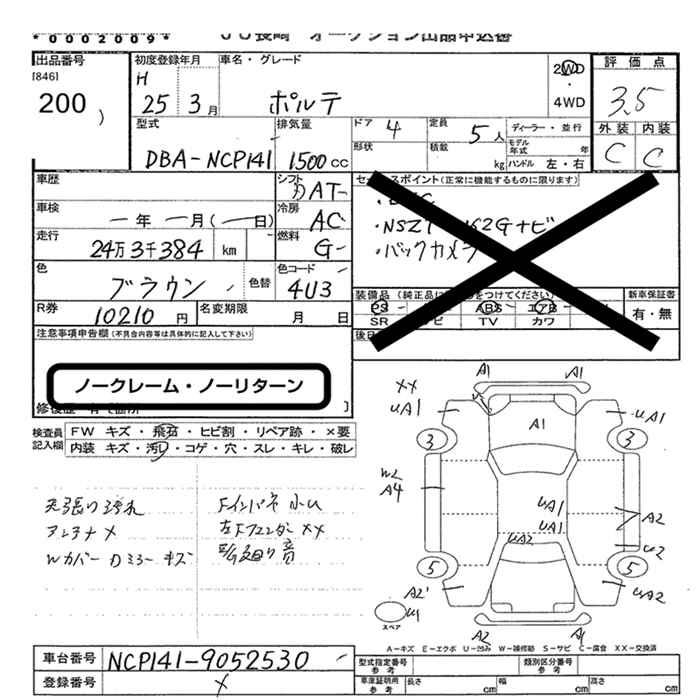 *0002009* JU長崎 オークション出品申込書
出品番号 初度登録年月 車名・グレード 2WD・4WD 評価点
[846] H
200 25 3月 ポルテ 3.5
型式 排気量 ドア 4 定員 5人 ディーラー・並行 外装 内装
DBA-NCP141 1500cc 形状 積数 kg モデル年式 年 ハンドル 左・右 C C
車歴 シフト AT セールスポイント(正常に機能するものに限ります)
車検 一年 一月(一日) 冷房 AC
・NSZT 62Gナビ
走行 24万3千384 km 燃料 G
・バックカメラ
色 ブラウン 色替 色コード 4U3
装備品(純正品に をつけてください) 新車保証書
R券 10210円 名変期限 月 日
PS ABS エアB 有・無
SR ナビ TV カワ
注意事項申告欄(不具合内容等は具体的に記入して下さい)
後日
ノークレーム・ノーリターン
修復歴 有
検査員記入欄 FW キズ・飛石・ヒビ割・リペア跡・×要
内装 キズ・汚れ・コゲ・穴・スレ・キレ・破レ
天張り汚れ
アンテナ×
Wカバー Dミラー キズ
Fインパネ 小U
左Fフェンダー XX
A1 A1
XX
UA1 A1 UA1
3 3
W2
A4 UA1 A2
UA1
UA2 U2
5 5
A2 UA2
U1
スペア
A2 A1
A-キズ E-エクボ U-凹み W-補修跡 S-サビ C-腐食 XX-交換済
車台番号 NCP141-9052530
型式指定番号 参考 類別区分番号 参考
登録番号 ×
車庫証明用 参考 長さ cm 幅 cm 高さ cm